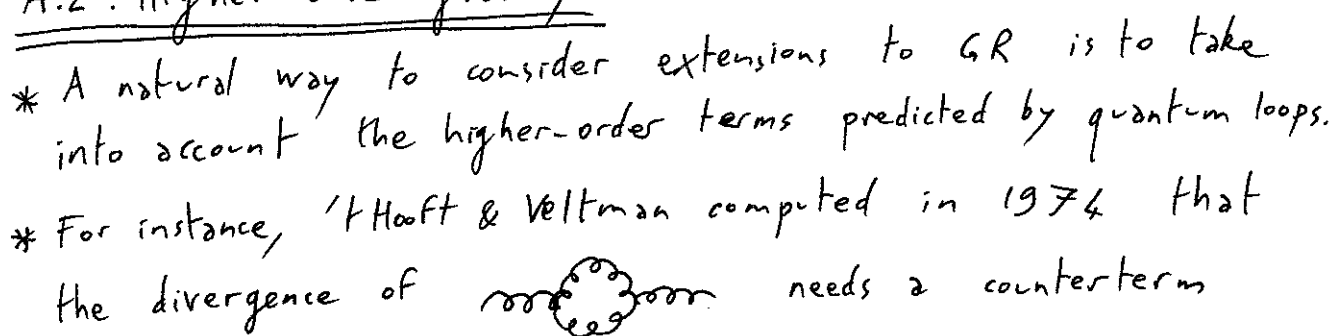 A.2 : Higher
* A natural way to consider extensions to GR is to take
into account the higher-order terms predicted by quantum loops.
* For instance, 't Hooft & Veltman computed in 1974 that
the divergence of needs a counterterm